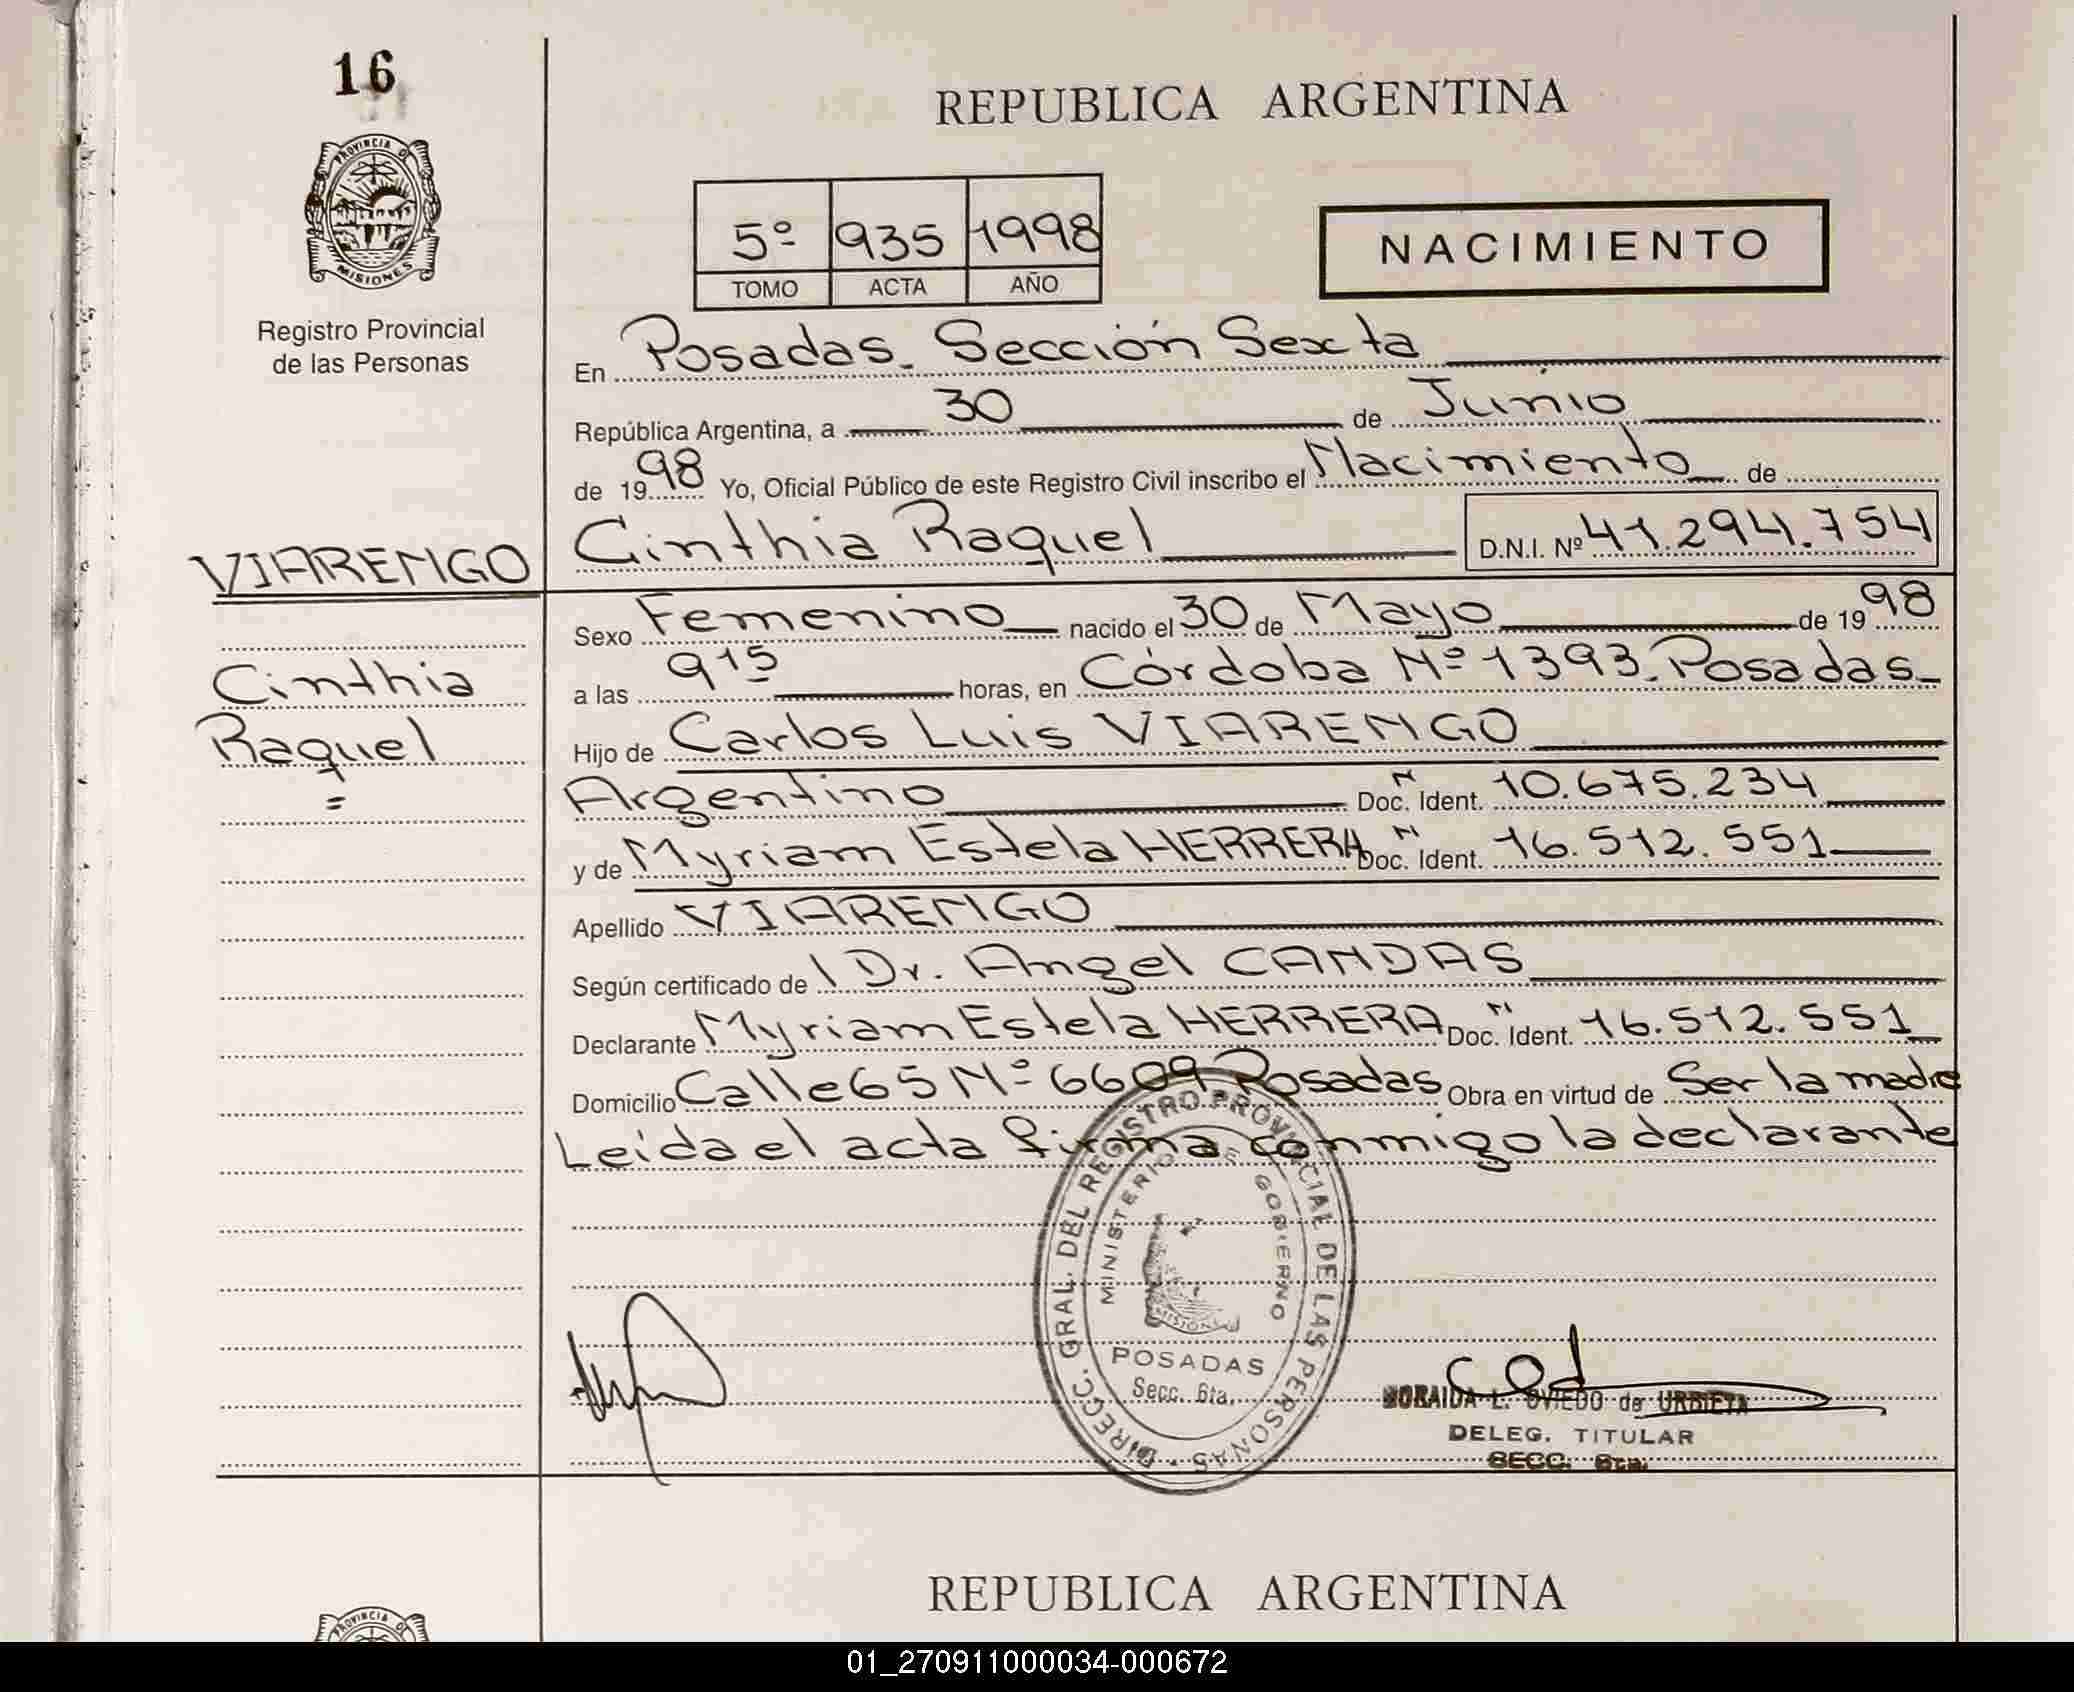 16
PROVINCIA D
MISIONES
Registro Provincial
de las Personas
REPUBLICA ARGENTINA
5º 935 1998
TOMO ACTA AÑO
NACIMIENTO
En Posadas. Sección Sexta
República Argentina, a 30 de Junio
de 1998 Yo, Oficial Público de este Registro Civil inscribo el Nacimiento de
VIARENGO
Cinthia Raquel D.N.I. Nº 41.294.754
Sexo Femenino nacido el 30 de Mayo de 1998
Cinthia
Raquel
=
a las 9 15 horas, en Córdoba Nº 1393. Posadas
Hijo de Carlos Luis VIARENGO
Argentino Doc. N Ident. 10.675.234
y de Myriam Estela HERRERA Doc. N Ident. 16.512.551
Apellido VIARENGO
Según certificado de Dr. Angel CANDAS
Declarante Myriam Estela HERRERA Doc. N Ident. 16.512.551
Domicilio Calle 65 Nº 6609 Posadas Obra en virtud de Ser la madre
Leída el acta firma conmigo la declarante
DIRECC. GRAL. DEL REGISTRO PROVINCIAL DE LAS PERSONAS
MINISTERIO DE GOBIERNO
MISIONES
POSADAS
Secc. 6ta.
NORAIDA L. OVIEDO de URBIETA
DELEG. TITULAR
SECC. 6ta.
REPUBLICA ARGENTINA
PROVINCIA D
01_270911000034-000672